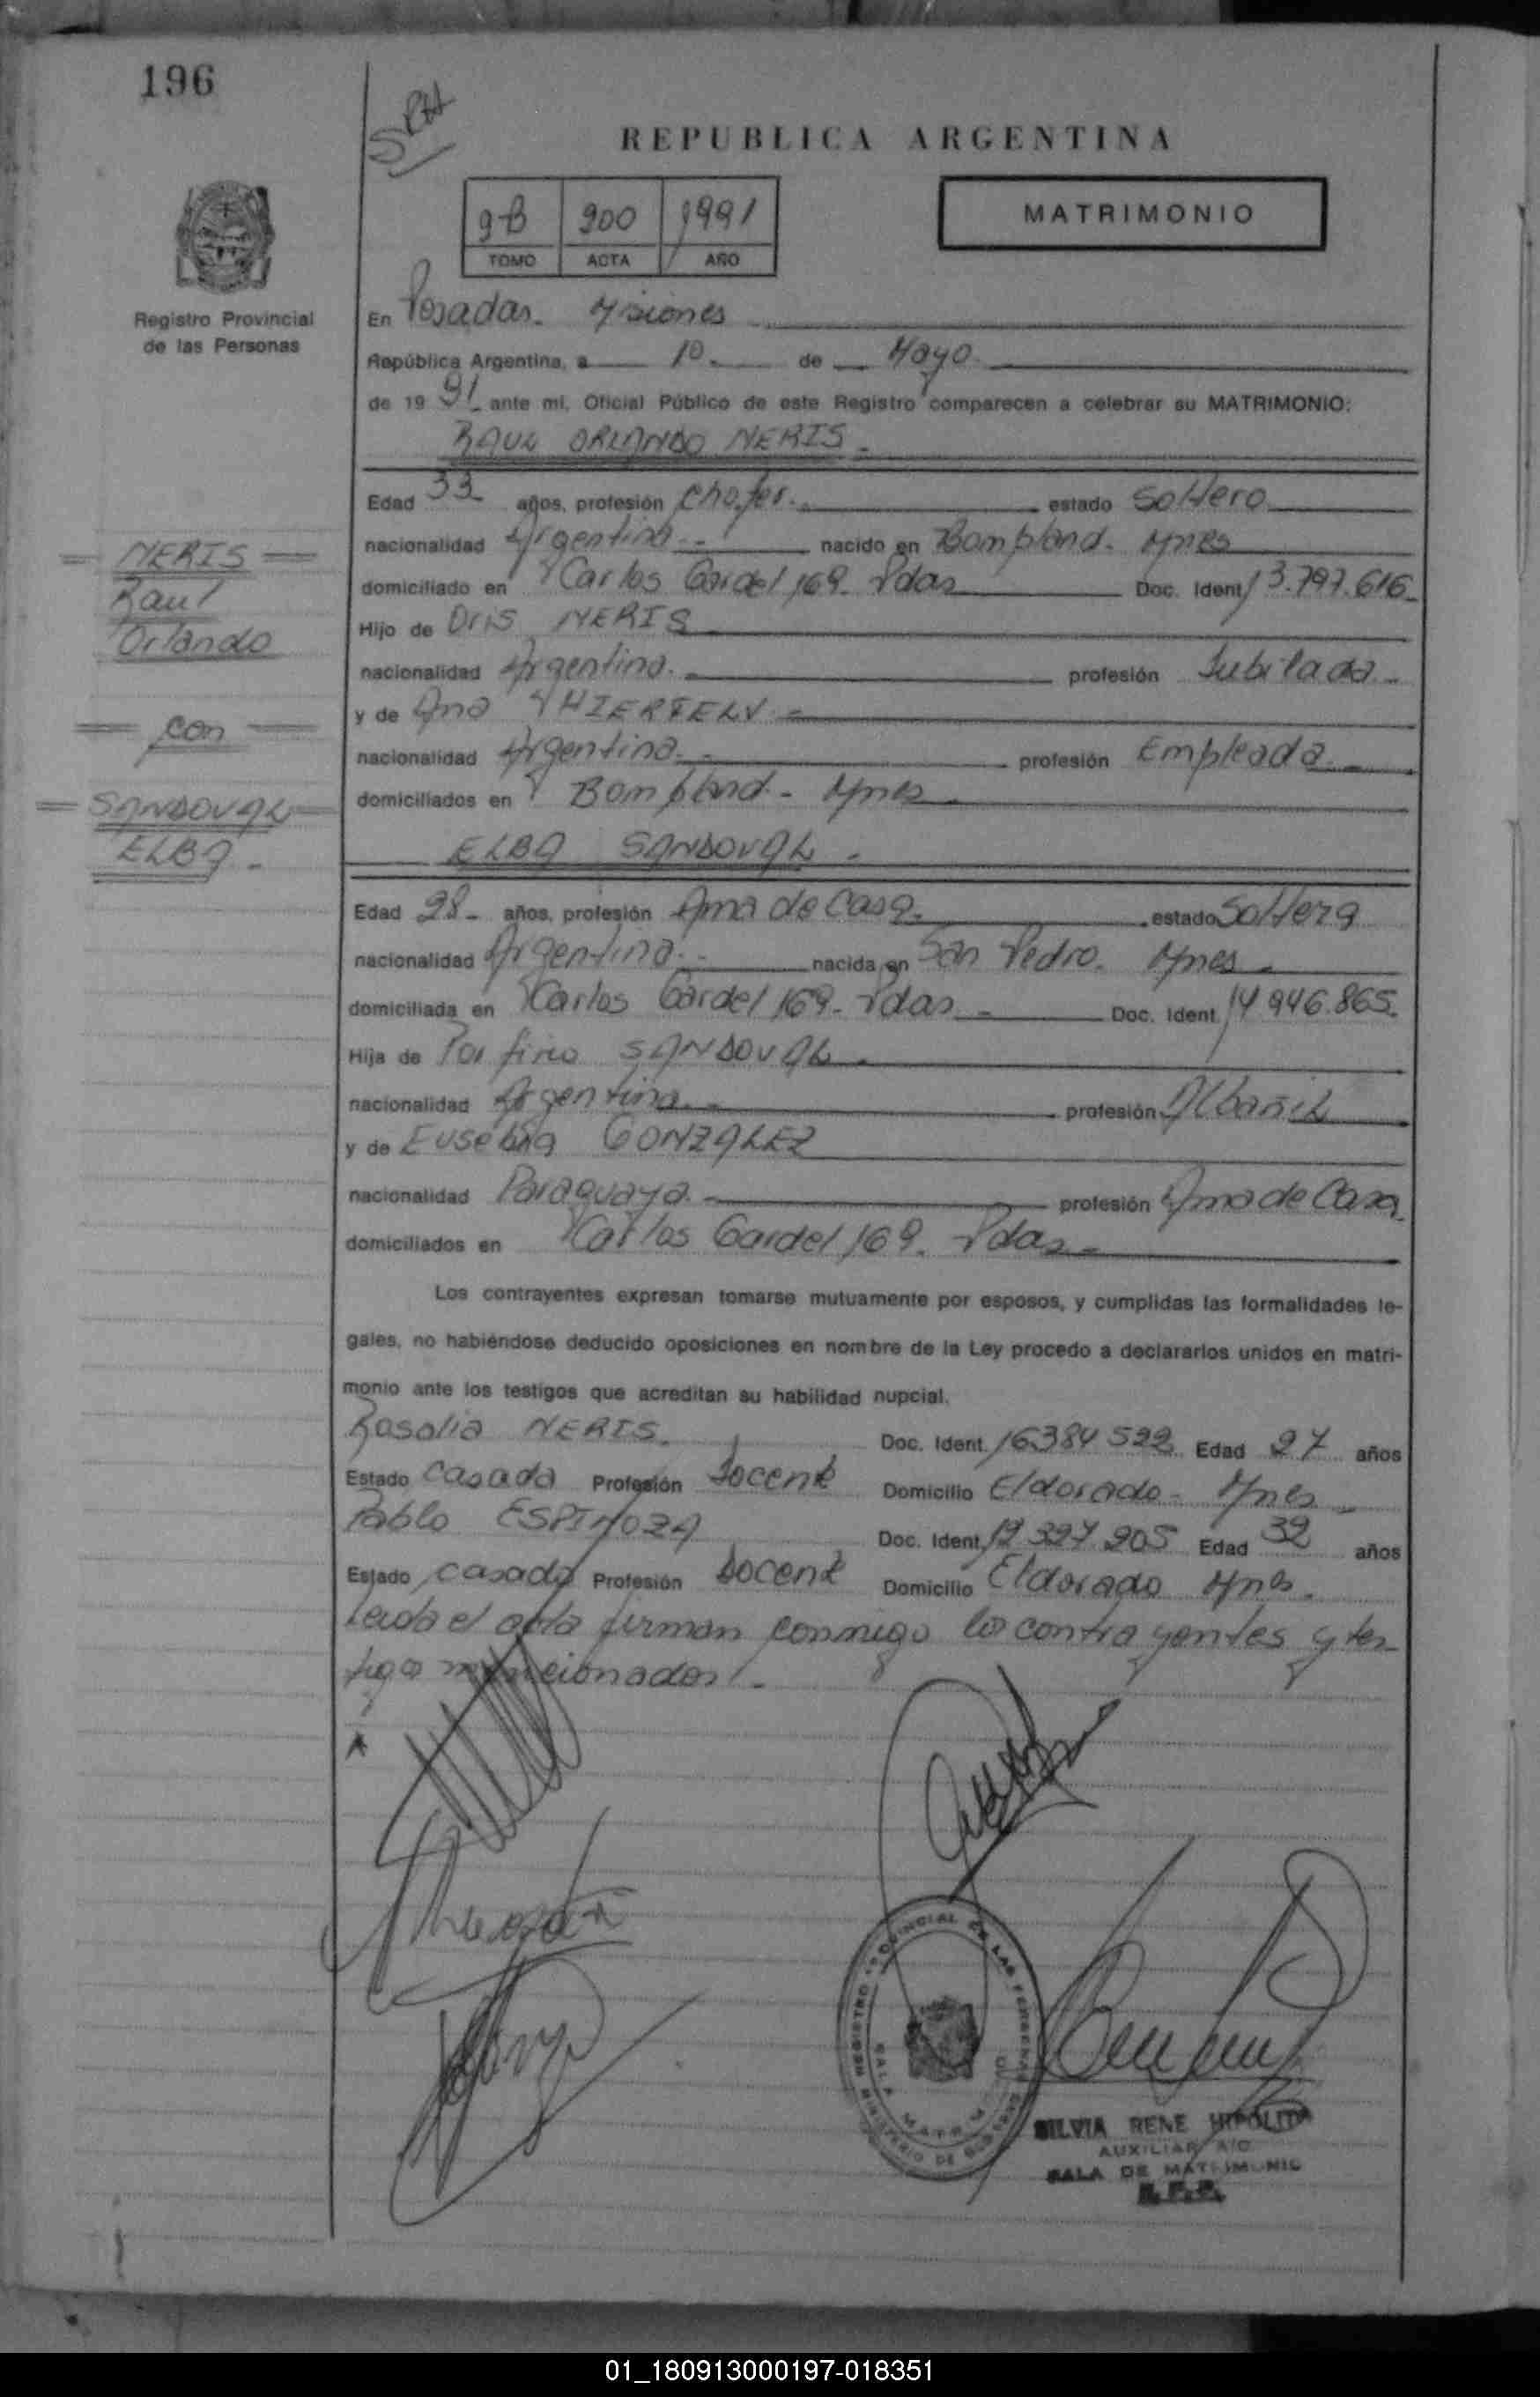 196
REPUBLICA ARGENTINA
MATRIMONIO
9-B 200 1991
TOMO ACTA AÑO
Registro Provincial
de las Personas
En Posadas. Misiones
República Argentina, a 10. de Mayo.
de 19 91 ante mí, Oficial Público de este Registro comparecen a celebrar su MATRIMONIO:
RAUL ORLANDO NERIS
Edad 33 años, profesión chofer. estado soltero
nacionalidad Argentina nacido en Bompland. Mnes
domiciliado en Carlos Gardel 169. Pdas Doc. Ident 13.797.616
Hijo de Oris NERIS
nacionalidad Argentina. profesión Jubilada
y de Ana
nacionalidad Argentina. profesión Empleada
domiciliados en Bompland - Mnes
NERIS
Raul
Orlando
con
SANDOVAL
ELBA
ELBA SANDOVAL
Edad 28 años, profesión Ama de Casa. estado Soltera
nacionalidad Argentina. nacida en San Pedro. Mnes
domiciliada en Carlos Gardel 169. Pdas Doc. Ident. 14 946.865.
Hija de Porfirio SANDOVAL
nacionalidad Argentina. profesión Albañil
y de Eusebia GONZALEZ
nacionalidad Paraguaya. profesión Ama de Casa
domiciliados en Carlos Gardel 169. Pdas
Los contrayentes expresan tomarse mutuamente por esposos, y cumplidas las formalidades le-
gales, no habiéndose deducido oposiciones en nombre de la Ley procedo a declararlos unidos en matri-
monio ante los testigos que acreditan su habilidad nupcial.
Rosalia NERIS. Doc. Ident. 16384 522 Edad 27 años
Estado Casada Profesión Docente Domicilio Eldorado - Mnes
Pablo ESPINOZA Doc. Ident. 12 327 205 Edad 32 años
Estado casado Profesión Docente Domicilio Eldorado Mnes.
Leida el acta firman conmigo los contrayentes y tes-
tigos mencionados.
REGISTRO PROVINCIAL DE LAS PERSONAS
MINISTERIO DE GOBIERNO
SALA MATRIMONIO
SILVIA RENE HIPOLITA
AUXILIAR A/C
SALA DE MATRIMONIO
R. P. P.
01_180913000197-018351